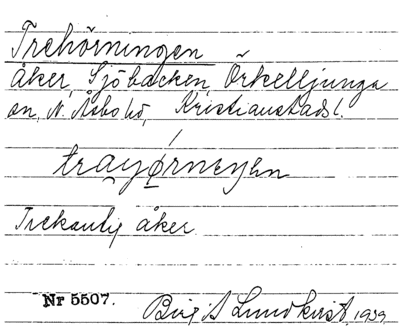 Trehörningen
åker, Sjöbacken, Örkelljunga
sn, N. Åsbo hd, Kristianstads l.
Trekantig åker
Nr 5507.
Birgit Lundkvist, 1939